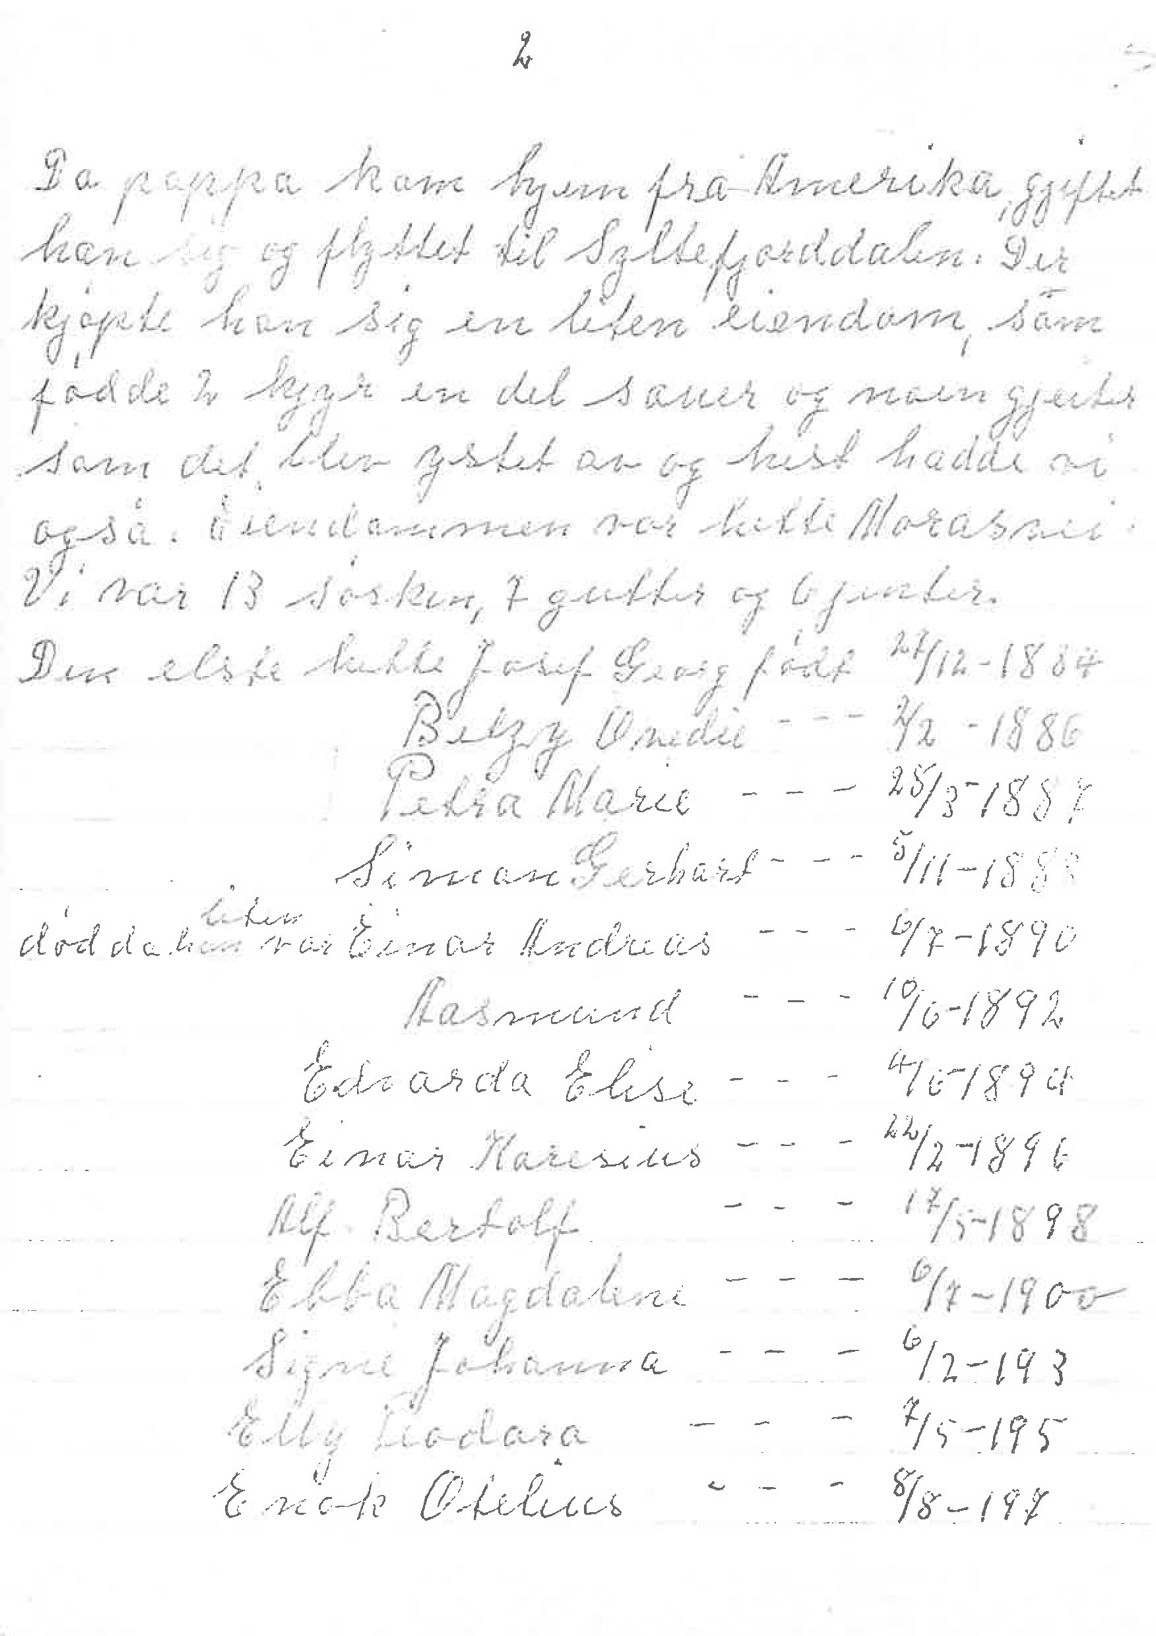 2
Da pappa kom hjem fra Amerika, gjiftet
han sig og flyttet til Syltefjorddalen. Der
kjøpte han sig en liten eiendom, som
fødde 2 kjyr en del sauer og noen gjeiter
som det blev ystet av og hest hadde vi
også. Eiendommen var hette Morasvei.
Vi var 13 søsken, 7 gutter og 6 jenter.
Den elste hette Josef Georg født 27/12-1884
Betzy Ovedie --- 2/2 - 1886
Petra Marie --- 25/3-1887
Simon Gerhart --- 5/11-1888
død da han liten var Einar Andreas --- 6/7-1890
Aasmund --- 10/6-1892
Edvarda Elise --- 4/6-1894
Einar Haresius --- 22/2-1896
Alf Bertolf --- 17/5-1898
Ebba Magdalene --- 6/7-1900
Signe Johanna --- 6/2-193
Elly Teodora --- 7/5-195
Enok Otelius --- 8/8-197